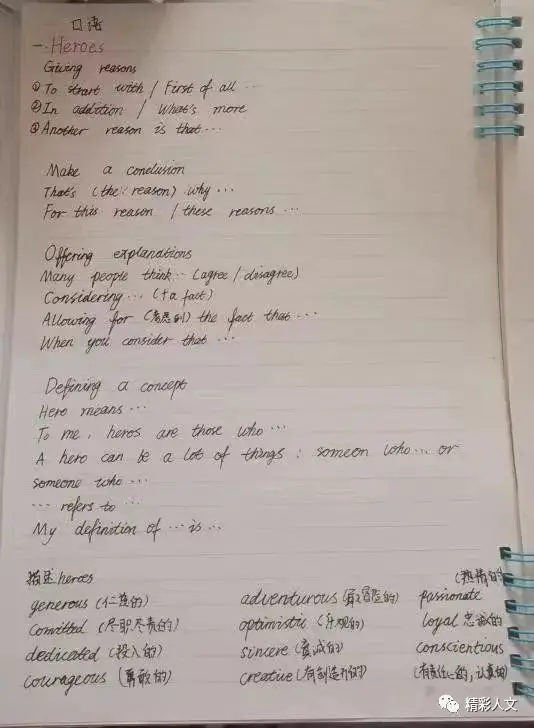 口语
一 Heroes
Giving reasons
①To start with / First of all …
②In addition / What's more
③Another reason is that …
Make a conclusion
That's (the reason) why …
For this reason / these reasons …
Offering explanations
Many people think … (agree / disagree)
Considering … (+a fact)
Allowing for (考虑到) the fact that …
When you consider that …
Defining a concept
Hero means …
To me, heros are those who …
A hero can be a lot of things : someen who … or
someone who …
… refers to …
My definition of … is …
描述heroes
generous (仁慈的) adventurous (爱冒险的) passionate (热情的)
Committed (尽职尽责的) optimistic (乐观的) loyal 忠诚的
dedicated (投入的) sincere (真诚的) conscientious
courageous (勇敢的) creative (有创造力的) (有责任心的,认真的)
精彩人文